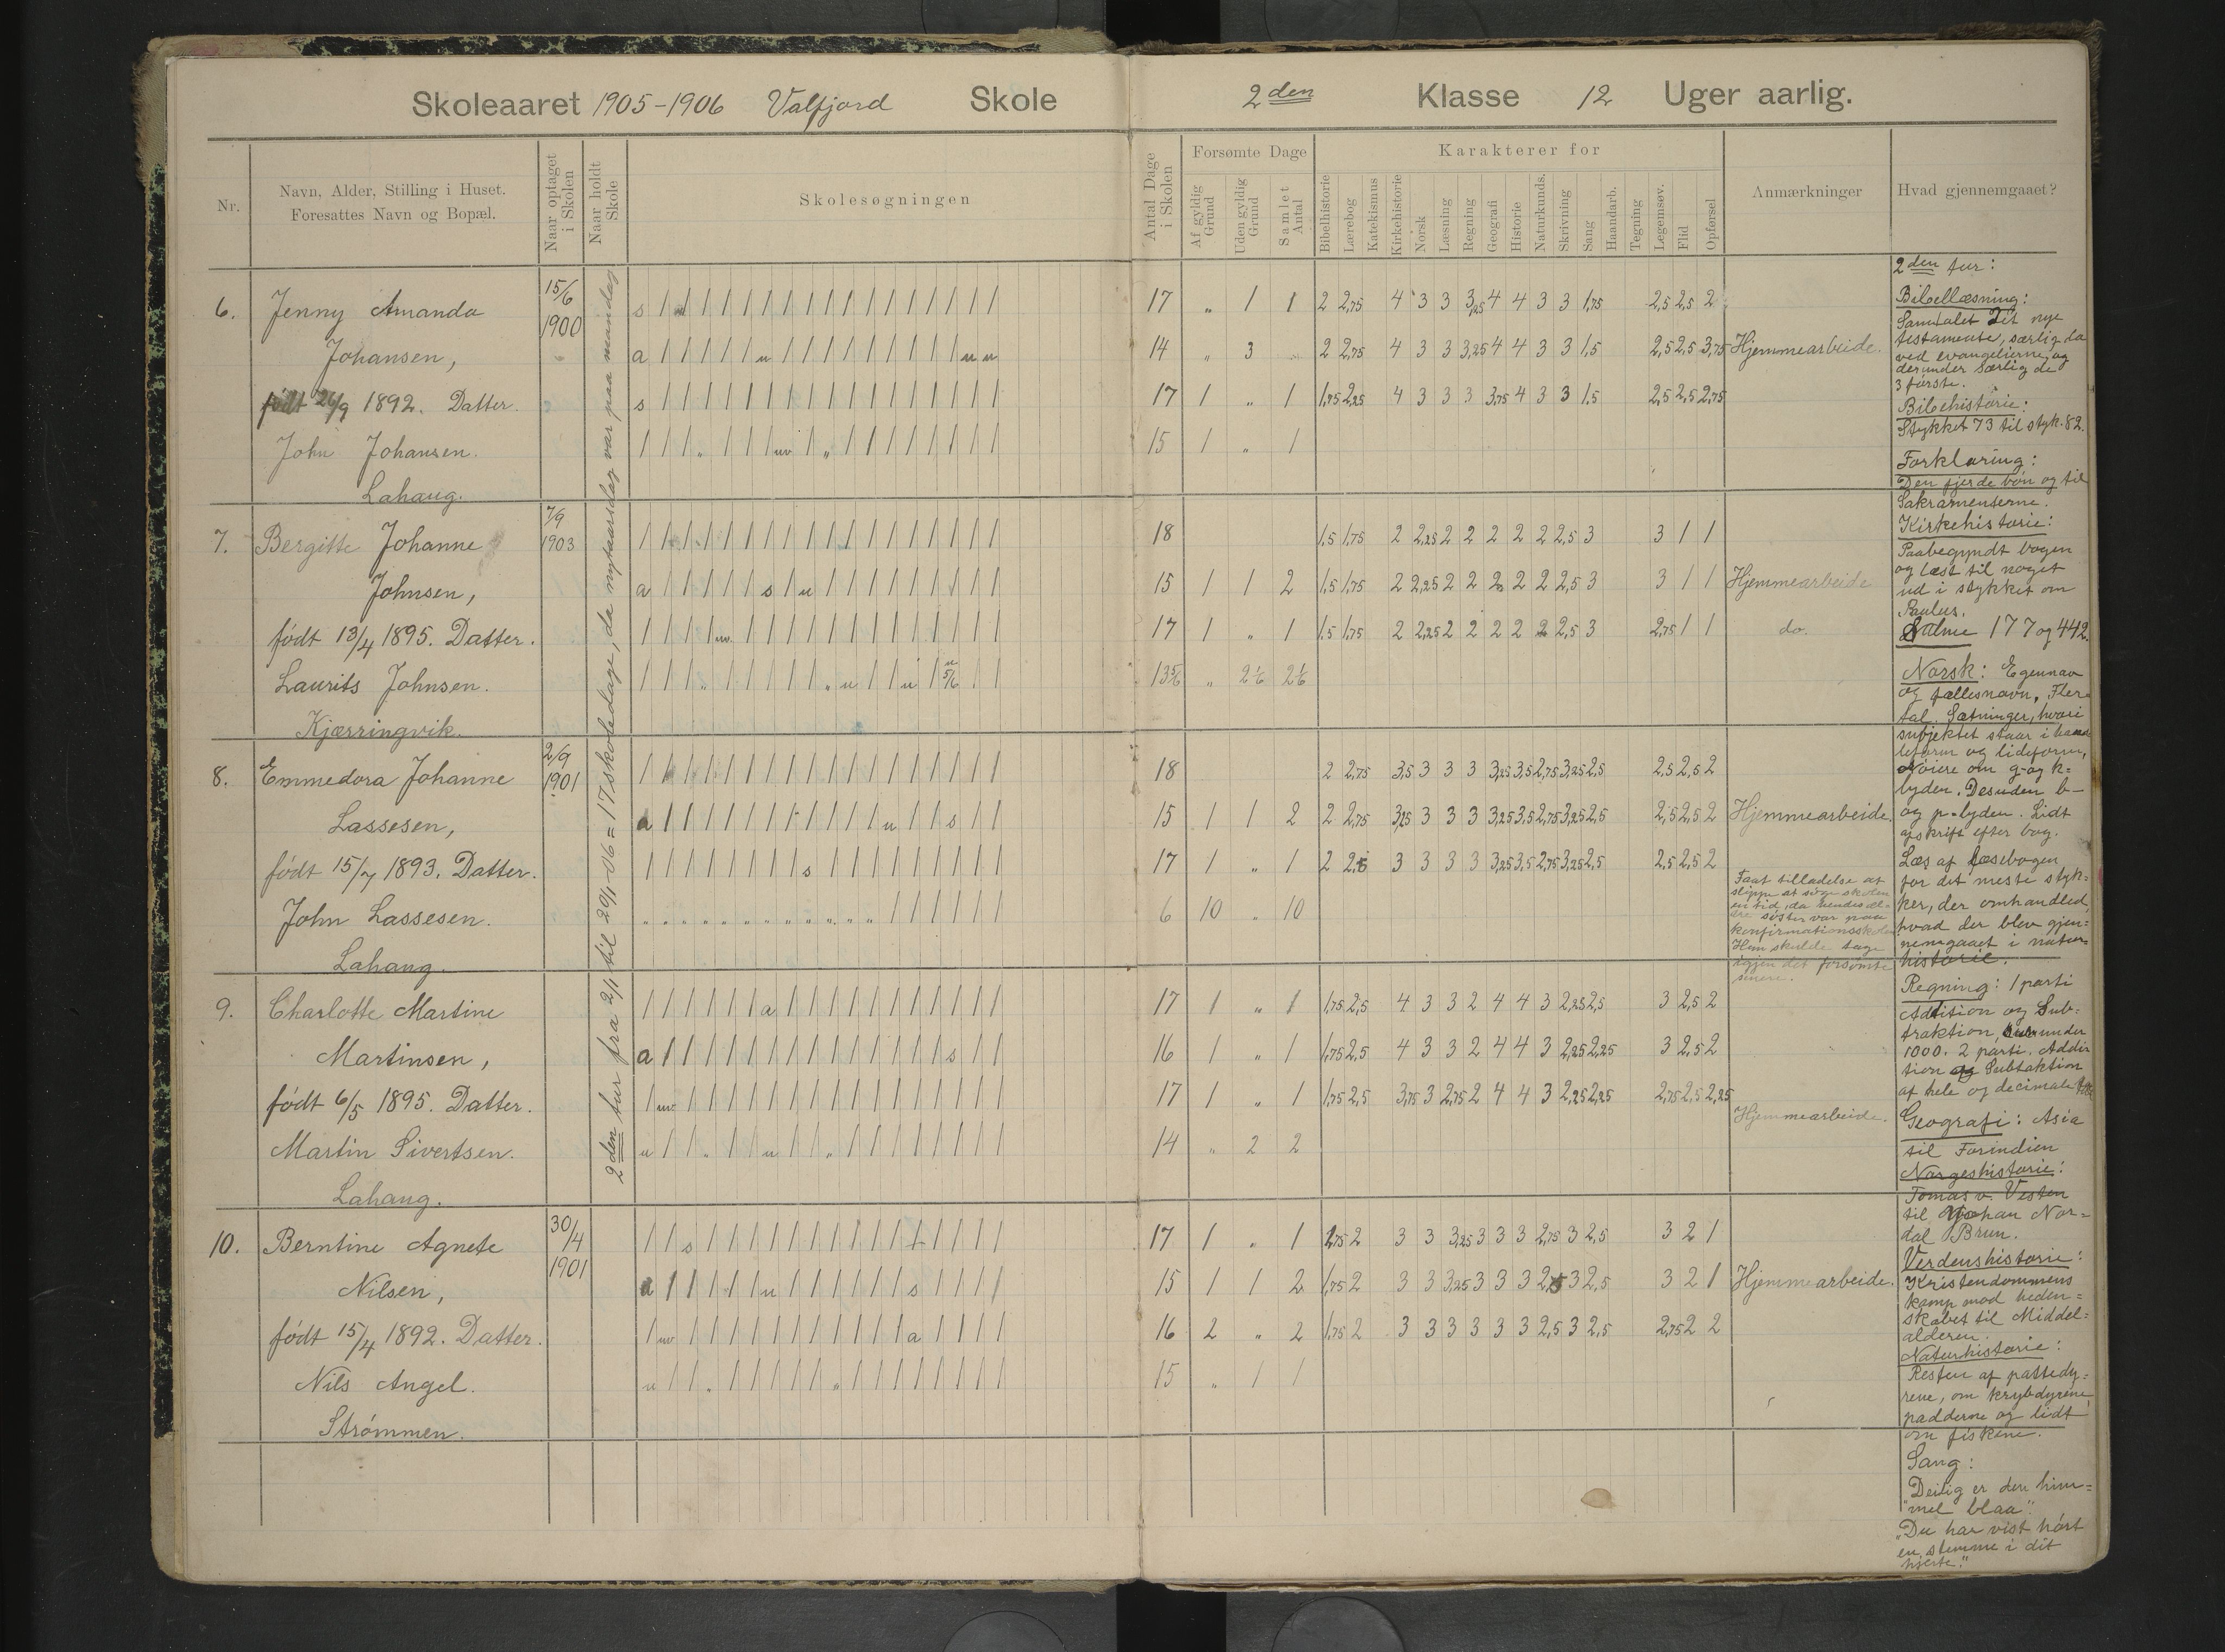 Skoleaaret 1905-1906 Valfjord Skole
2den Klasse 12 Uger aarlig.
Nr.
Navn, Alder, Stilling i Huset.
Foresattes Navn og Bopæl.
Naar optaget
i Skolen
Naar holdt
Skole
Skolesøgningen
Antal Dage
i Skolen
Forsømte Dage
Af gyldig
Grund
Uden gyldig
Grund
Samlet
Antal
Karakterer for
Bibelhistorie
Lærebog
Katekismus
Kirkehistorie
Norsk
Læsning
Regning
Geografi
Historie
Naturkunds.
Skrivning
Sang
Haandarb.
Tegning
Legemsøv.
Flid
Opførsel
Anmærkninger
Hvad gjennemgaaet?
2den tur fra 2/1 til 20/1 06 = 17 skoledage, da nytaarsdag var paa mandag
6. Jenny Amanda 15/6 1900
Johansen,
født 26/9 1892. Datter.
John Johansen.
Lahaug.
17 „ 1 1 2 2,75 4 3 3 3,25 4 4 3 3 1,75 2,5 2,5 2
14 „ 3 2 2,75 4 3 3 3,25 4 4 3 3 1,5 2,5 2,5 3,75 Hjemmearbeide.
17 1 „ 1 1,75 2,25 4 3 3 3 3,75 4 3 3 1,5 2,5 2,5 2,75
15 1 „ 1
7. Bergitte Johanne 7/9 1903
Johnsen,
født 13/4 1895. Datter.
Laurits Johnsen.
Kjærringvik.
18 1,5 1,75 2 2,25 2 2 2 2 2 2,5 3 3 1 1
15 1 1 2 1,5 1,75 2 2,25 2 2 2 2 2 2,5 3 3 1 1 Hjemmearbeide
17 1 „ 1 1,5 1,75 2 2,25 2 2 2 2 2 2,5 3 2,75 1 1 do.
13 5/6 „ 2 1/6 2 1/6
8. Emmedora Johanne 2/9 1901
Lassesen,
født 15/7 1893. Datter.
John Lassesen.
Lahaug.
18 2 2,75 3,5 3 3 3 3,25 3,5 2,75 3,25 2,5 2,5 2,5 2
15 1 1 2 2 2,75 3,25 3 3 3 3,25 3,5 2,75 3,25 2,5 2,5 2,5 2 Hjemmearbeide.
17 1 „ 1 2 2,5 3 3 3 3 3,25 3,5 2,75 3,25 2,5 2,5 2,5 2
6 10 „ 10
Faat tilladelse at
slippe at søge skolen
en tid, da hendes æl=
dre søster var paa
konfirmationsskolen
Hun skulde tage
igjen det forsømte
senere.
9. Charlotte Martine
Martinsen,
født 6/5 1895. Datter.
Martin Sivertsen.
Lahaug.
17 1 „ 1 1,75 2,5 4 3 3 2 4 4 3 2,25 2,5 3 2,5 2
16 1 „ 1 1,75 2,5 4 3 3 2 4 4 3 2,25 2,25 3 2,5 2
17 1 „ 1 1,75 2,5 3,75 3 2,75 2 4 4 3 2,25 2,25 2,75 2,5 2,25
Hjemmearbeide.
14 „ 2 2
10. Berntine Agnete 30/4 1901
Nilsen,
født 15/4 1892. Datter.
Nils Angel.
Strømmen.
17 1 „ 1 1,75 2 3 3 3,25 3 3 3 2,75 3 2,5 3 2 1
15 1 1 2 1,75 2 3 3 3,25 3 3 3 2,5 3 2,5 3 2 1 Hjemmearbeide.
16 2 „ 2 1,75 2 3 3 3 3 3 3 2,5 3 2,5 2,75 2 2
15 „ 1 1
2den tur:
Bibellæsning:
Samtalet Det nye
testamente, særlig da
ved evangelierne, og
derunder særlig de
3 første.
Bibehistorie:
Stykket 73 til styk. 82.
Forklaring:
Den fjerde bøn og til
Sakramenterne.
Kirkehistorie:
Paabegyndt bogen
og læst til noget
ud i stykket om
Paulus.
Salme 177 og 442.
Norsk: Egennavn
og fællesnavn, Fler=
tal. Sætninger, hvori
subjektet staar i hand
leform og lideform,
Nøiere om g- og k=
lyden. Desuden b-
og p-lyden. Lidt
afskrift efter bog.
Læs af læsebogen
for det meste styk=
ker, der omhandled
hvad der blev gjen=
nemgaaet i natur=
historie.
Regning: 1 parti
Addition og Sub=
traktion, under
1000. 2 parti. Addi
tion og Subtaktion
af hele og decimale
Geografi: Asia
til Forindien
Norgeshistorie:
Tomas v. Vesten
til Johan Nor=
dal Brun.
Verdenshistorie:
Kristendommens
kamp mod heden=
skabet til Middel=
alderen.
Naturhistorie:
Resten af pattedy=
rene, om krybdyrene
padderne og lidt
om fiskene.
Sang:
"Deilig er den him=
mel blaa"
„Du har vist hørt
en stemme i dit
hjerte."